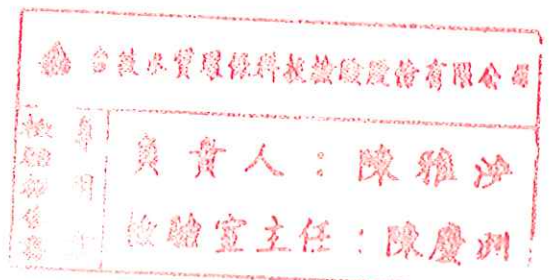 台技水質環保科技檢驗股份有限公司
檢驗報告專用章
負責人：陳雅沙
檢驗室主任：陳慶洲